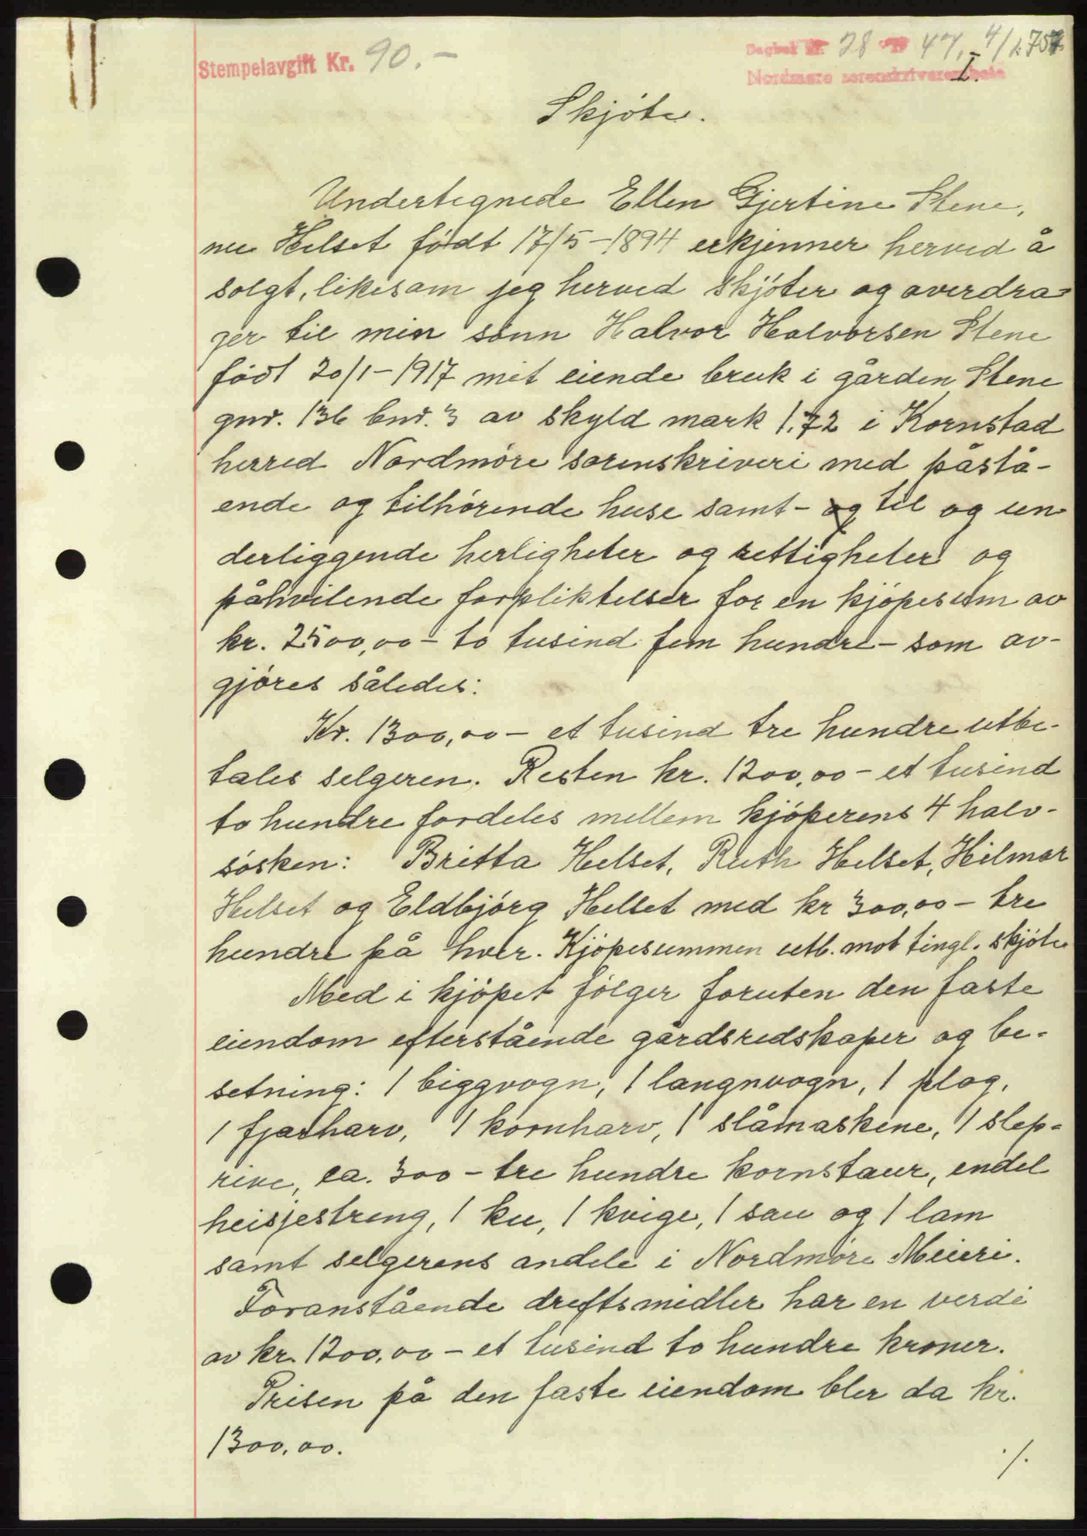 Stempelavgift Kr. 90.-
Dagbok nr. 28 47. 4/1. 757
Nordmøre sorenskriverembete
I.
Skjöte.
Undertegnede Ellen Gjertine Stene,
nee Helset födt 17/5-1894 erkjenner herved å
solgt, likesom jeg herved skjöter og averdra-
ger til min sönn Halvor Halvorsen Stene
födt 20/1-1917 mit eiende bruk i gården Stene
gnr. 136 bnr. 3 av skyld mark 1,72 i Kornstad
herred Nordmöre sorenskriveri med påstå-
ende og tilhörende huse samt - og til og un
derliggende herligheter og rettigheter og
påhvilende forpliktelser for en kjöpesum av
kr. 2500,00 - to tusind fem hundre - som av-
gjöres således:
Kr. 1300,00 - et tusind tre hundre utbe-
tales selgeren. Resten kr. 1200,00 - et tusind
to hundre fordeles mellem kjöperens 4 halv-
sösken: Britta Helset, Ruth Helset, Hilmar
Helset og Eldbjörg Helset med kr 300,00 - tre
hundre på hver. Kjöpesummen utb. mot tingl. skjöte
Med i kjöpet fölger foruten den faste
eiendom efterstående gårdsredskaper og be-
setning: 1 biggvogn, 1 langnvogn, 1 plog,
1 fjærharv, 1 kornharv, 1 slåmaskine, 1 slep-
rive, ca. 300 - tre hundre kornstaur, endel
heisjestreng, 1 ku, 1 kvige, 1 sau og 1 lam
samt selgerens andele i Nordmöre Meieri.
Foranstående dreftsmidler har en verdi
av kr. 1200,00 - et tusind to hundre kroner.
Prisen på den faste eiendom bler da kr.
1300,00.
./.